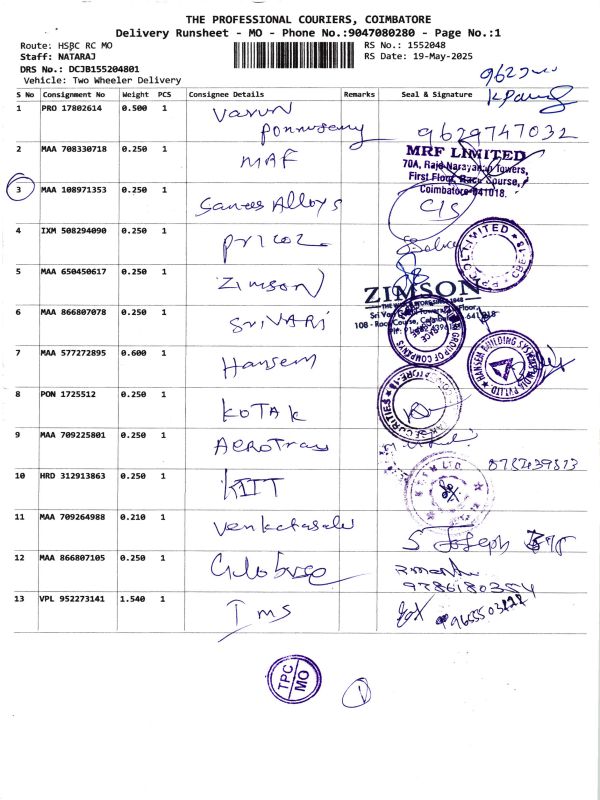 THE PROFESSIONAL COURIERS, COIMBATORE
Delivery Runsheet - MO - Phone No.:9047080280 - Page No.:1
Route: HSBC RC MO
RS No.: 1552048
Staff: NATARAJ
RS Date: 19-May-2025
DRS No.: DCJB155204801
Vehicle: Two Wheeler Delivery
S No Consignment No Weight PCS Consignee Details Remarks Seal & Signature
1 PRO 17802614 0.500 1 Varun
9629747032
2 MAA 708330718 0.250 1 MRF
MRF LIMITED
70A, Raja Narayanan Towers,
First Floor, Race Course,
Coimbatore-641018.
3 MAA 108971353 0.250 1 Alloys
C/S
4 IXM 508294090 0.250 1 Pricol
5 MAA 650450617 0.250 1 Zimson
ZIMSON
6 MAA 866807078 0.250 1 SRIVARI
GROUP OF COMPANYS
7 MAA 577272895 0.600 1 Hansen
8 PON 1725512 0.250 1 KOTAK
SECURITIES
9 MAA 709225801 0.250 1 AEROTrans
8782439813
10 HRD 312913863 0.250 1
11 MAA 709264988 0.210 1
S Joseph
12 MAA 866807105 0.250 1
9786180354
13 VPL 952273141 1.540 1 TMS
TPC
MO
1